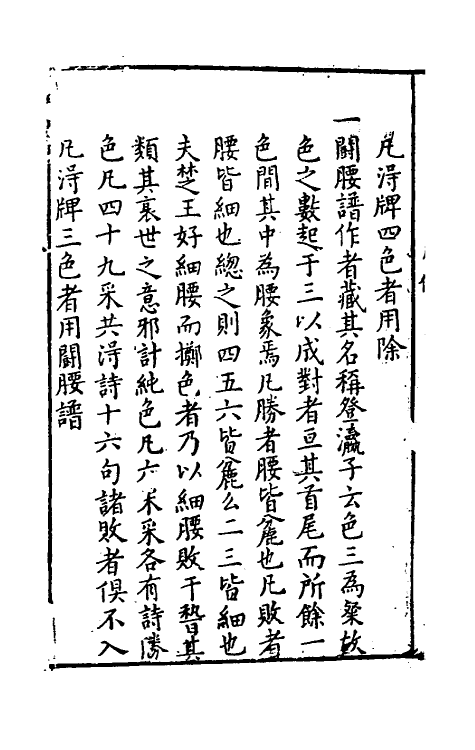 凡淂牌四色者用除
一鬬腰譜作者藏其名稱登瀛子云色三為粲故
色之數起于三以成對者亘其首尾而所餘一
色間其中為腰象焉凡勝者腰皆麄也凡敗者
腰皆細也總之則四五六皆麄么二三皆細也
夫楚王好細腰而擲色者乃以細腰敗于㬱其
類其衰世之意邪計純色凡六采采各有詩勝
色凡四十九采共淂詩十六句諸敗者俱不入
凡淂牌三色者用鬬腰譜